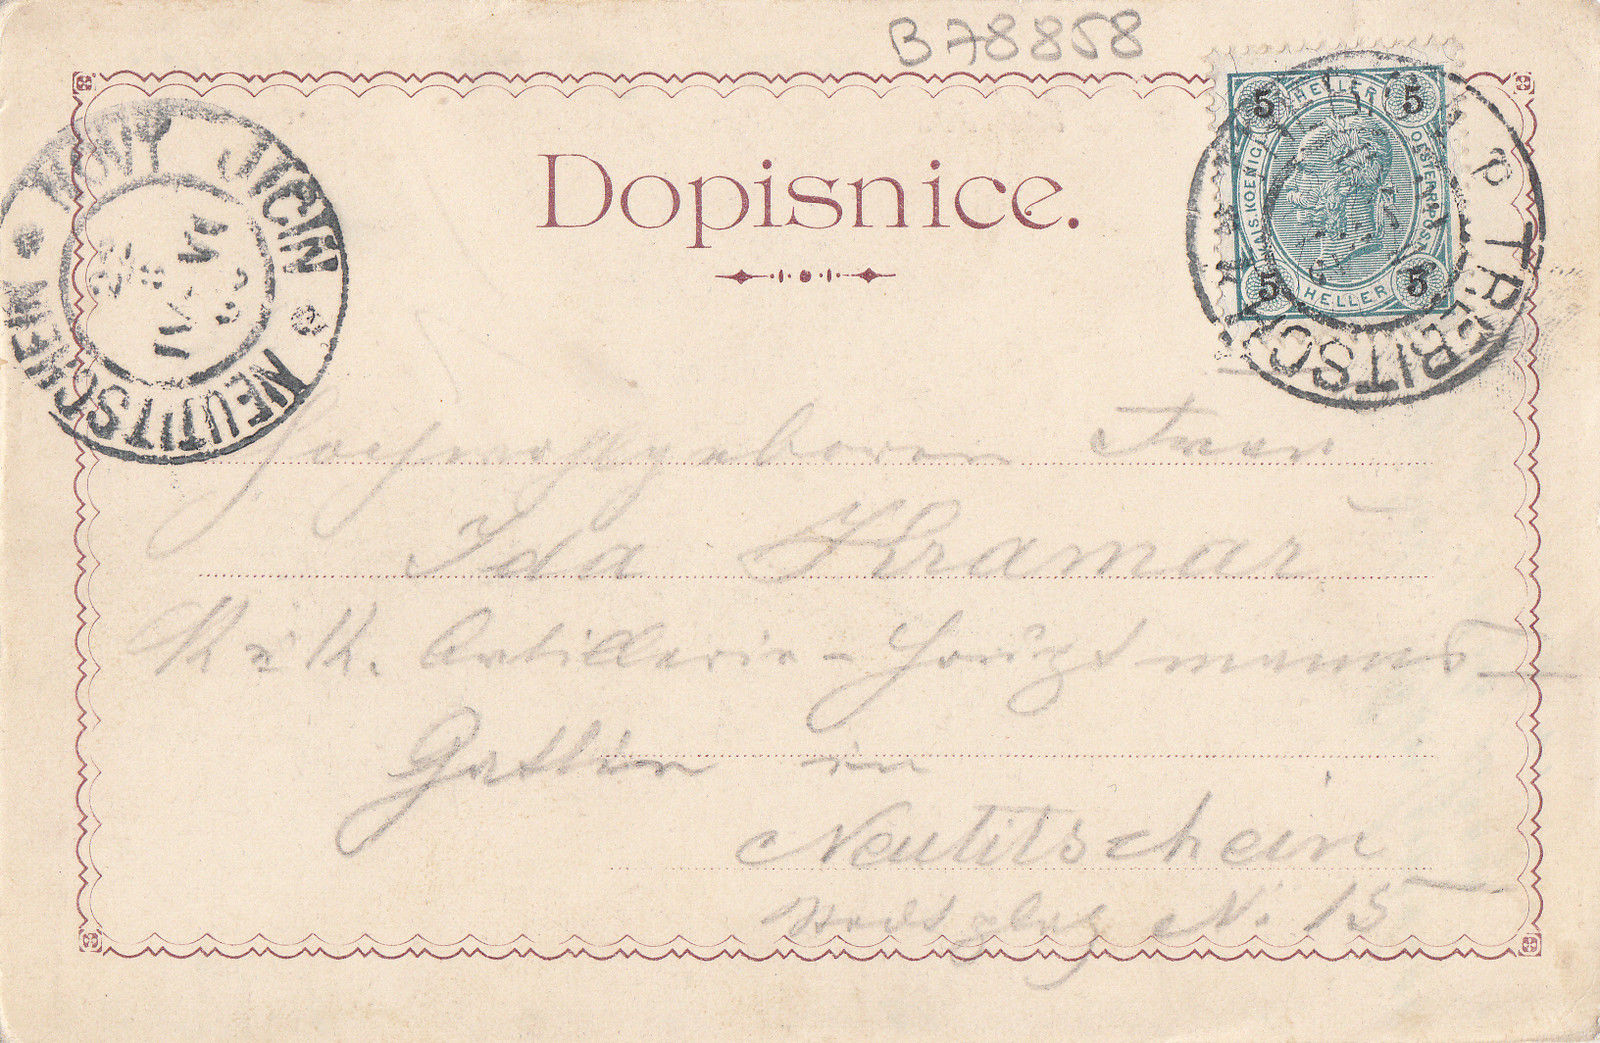 B 78858
Dopisnice.
NOVÝ JIČÍN * NEUTITSCHEIN *
TREBITSCH
5 HELLER 5
KAIS. KOENIGL. OESTERR. POST
5 HELLER 5
Hochwohlgeboren Frau
Ida Kramař
K u K. Artillerie-Hauptmanns-
Gattin in
Neutitschein
Stadtplatz N. 15